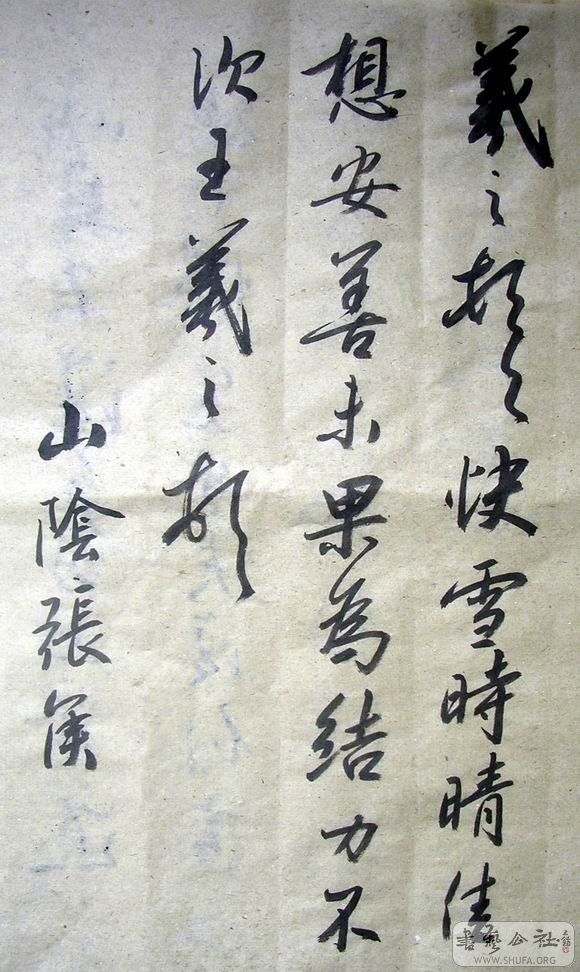 羲之頓首快雪時晴佳
想安善未果為結力不
次王羲之頓首
山陰張侯
書藝公社
WWW.SHUFA.ORG